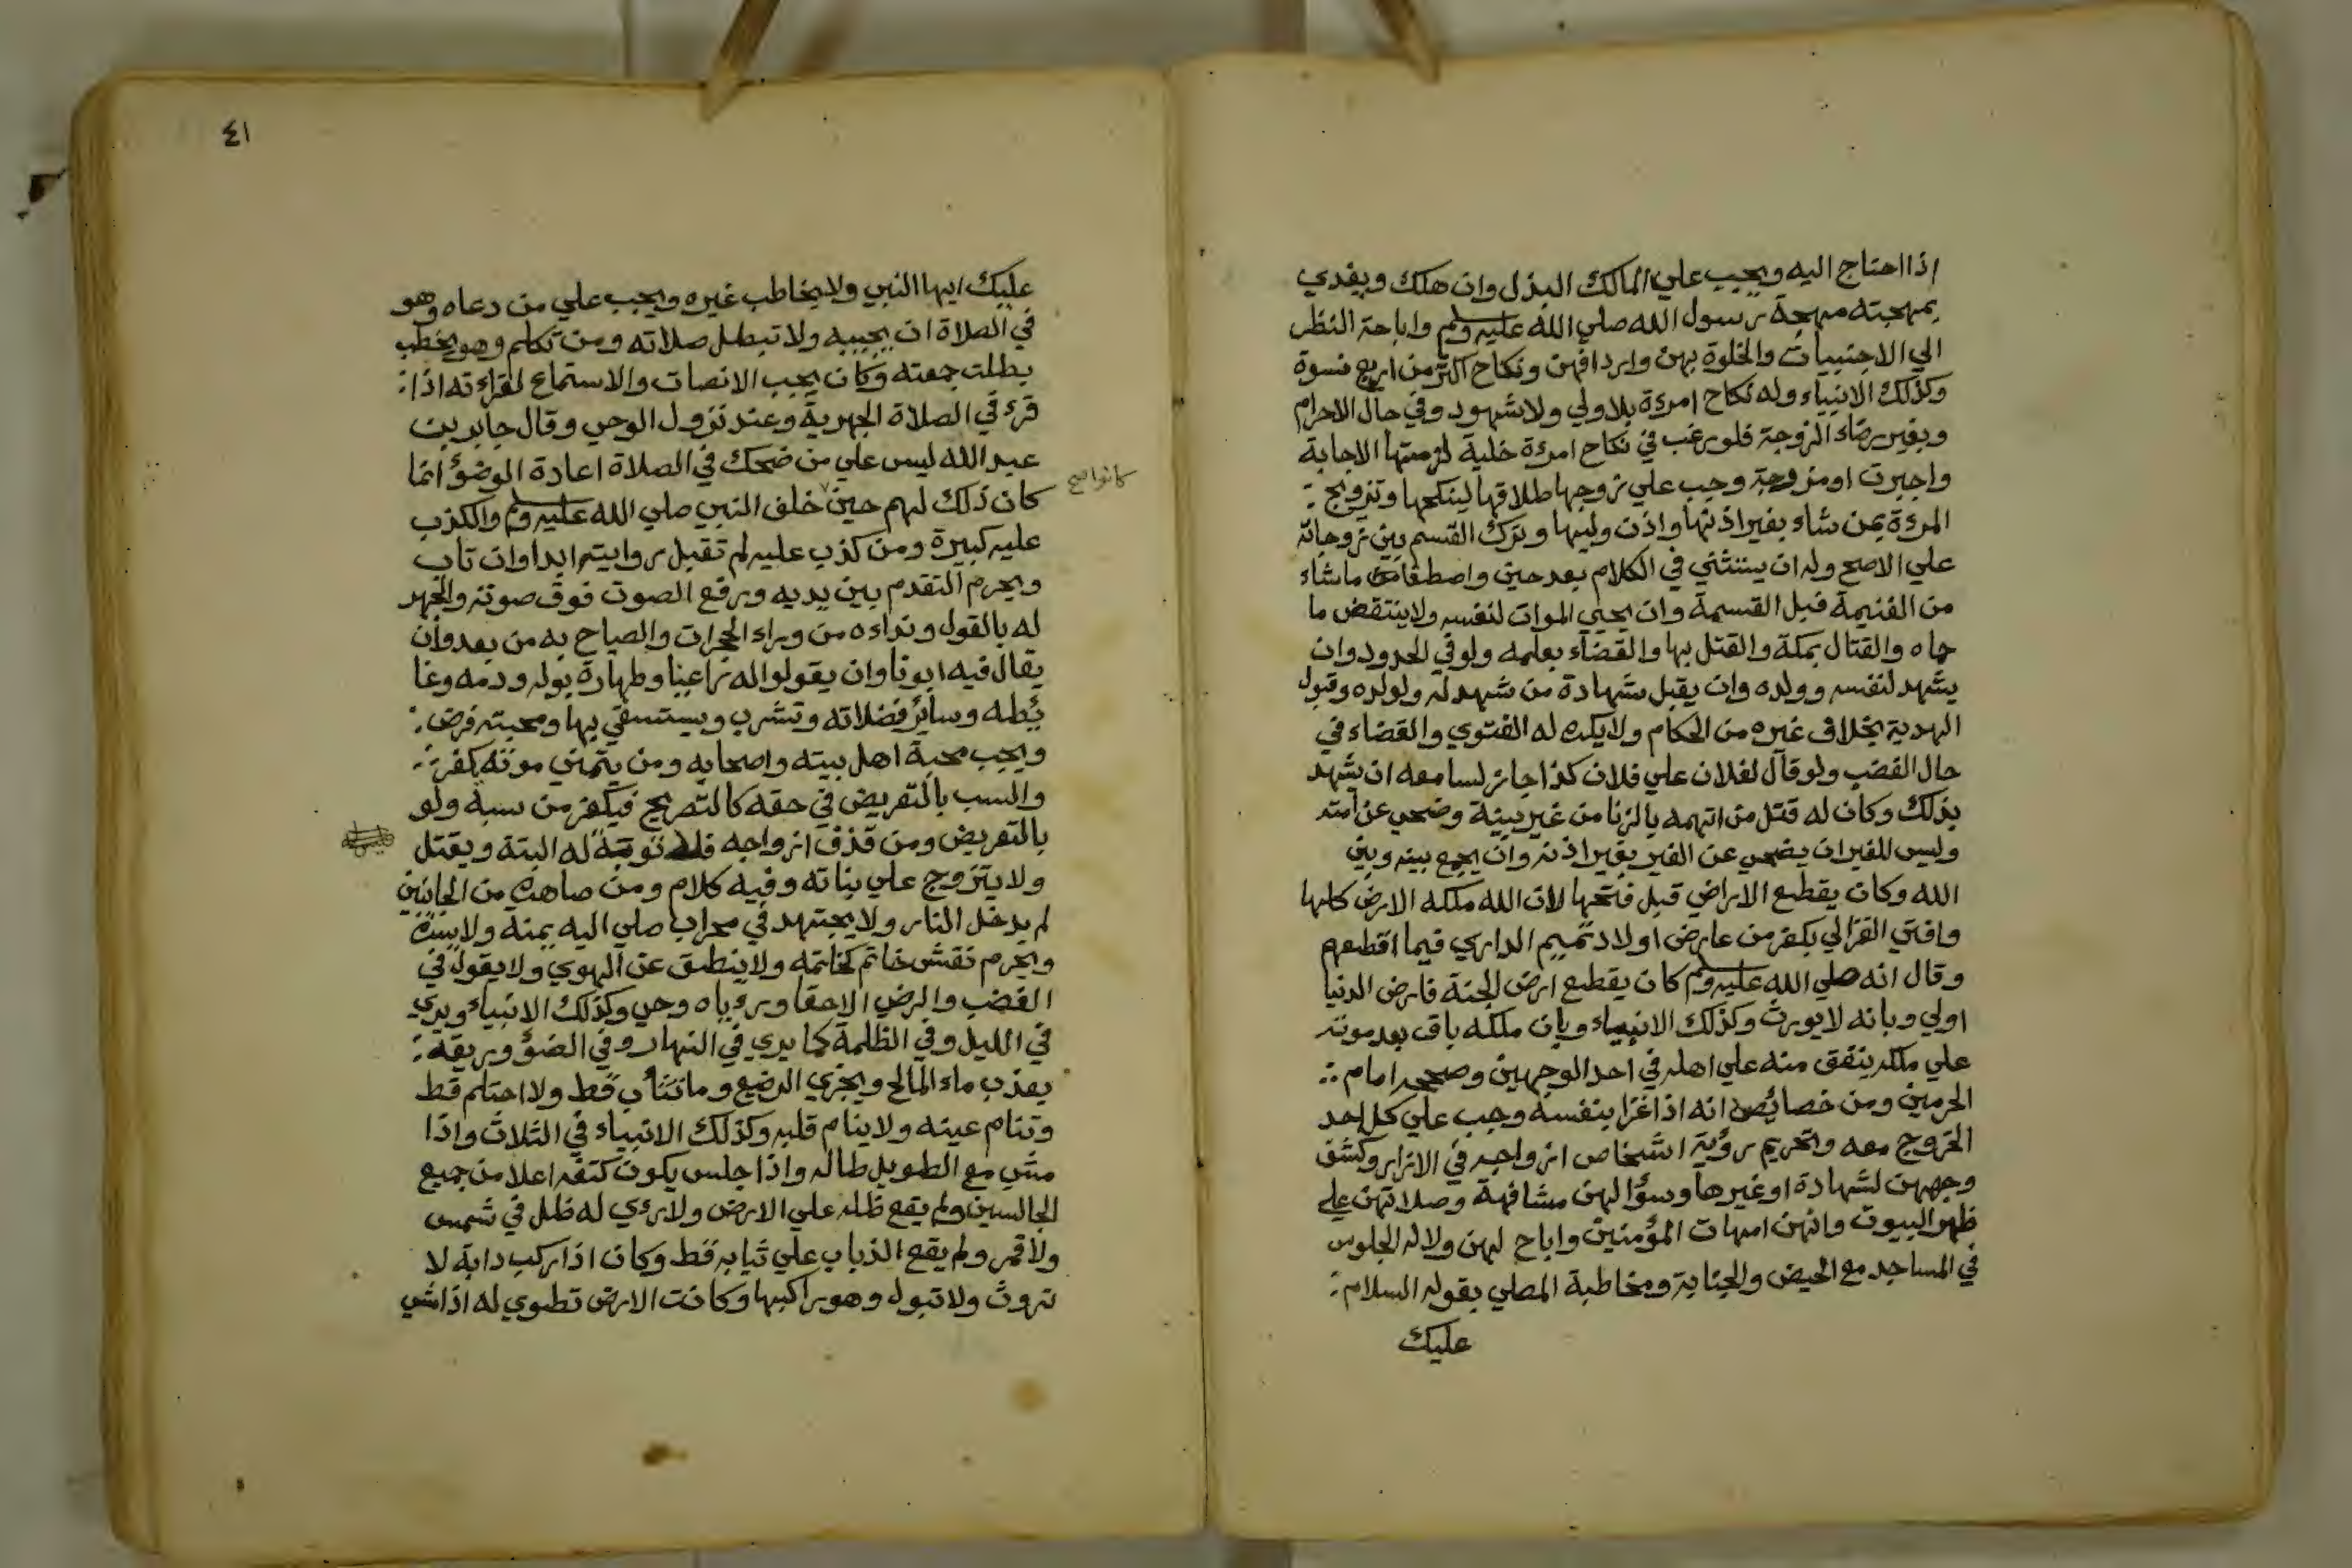 اذا احتاج اليه ويجب علي المالك البذل وان هلك ويفدي
بمهجته مهجة رسول الله صلي الله عليه وسلم واباحة النظر
الي الاجنبيات والخلوة بهن وارد افهن ونكاح اكثر من اربع نسوة
وكذلك الانبياء وله نكاح امرءة بلا ولي ولا شهود وفي حال الاحرام
وبغير رضاء الزوجة فلو رغب في نكاح امرءة خلية لزمتها الاجابة
واجبرت او مزوجة وجب علي زوجها طلاقها لينكحها وتزويج
المرءة بمن شاء بغير اذنها واذن وليها وترك القسم بين زوجاته
علي الاصح وله ان يستثني في الكلام بعد حين واصطفا ما شاء
من الغنيمة قبل القسمة وان يحيي الموات لنفسه ولا ينتقض ما
حماه والقتال بمكة والقتل بها والقضاء بعلمه ولو في الحدود وان
يشهد لنفسه وولده وان يقبل شهادة من شهد له ولولده وقبول
الهدية بخلاف غيره من الحكام ولا يكره له الفتوي والقضاء في
حال الغضب ولو قال لفلان علي فلان كذا جاز لسامعه ان يشهد
بذلك وكان له قتل من اتهمه بالزنا من غير بينة وضحي عن امته
وليس للغير ان يضحي عن الغير بغير اذنه وان يجمع بينه وبين
الله وكان يقطع الاراضي قبل فتحها لان الله ملكه الارض كلها
وافتي الغزالي بكفر من عارض اولاد تميم الداري فيما اقطعهم
وقال انه صلي الله عليه وسلم كان يقطع ارض الجنة فارض الدنيا
اولي وبانه لا يورث وكذلك الانبياء وبان ملكه باق بعد موته
علي ملكه ينفق منه علي اهله في احد الوجهين وصححه امام
الحرمين ومن خصائص انه اذا غزا بنفسه وجب علي كل احد
الخروج معه وتحريم رؤية اشخاص ازواجه في الازار وكشف
وجههن لشهادة او غيرها وسؤالهن مشافهة وصلاتهن علي
ظهر البيوت وانهن امهات المؤمنين واباح لهن ولاله الجلوس
في المساجد مع الحيض والجنابة ومخاطبة المصلي بقوله السلام
عليك
٤١
عليك ايها النبي ولا يخاطب غيره ويجب علي من دعاه وهو
في الصلاة ان يجيبه ولا تبطل صلاته ومن تكلم وهو يخطب
بطلت جمعته وكان يجب الانصات والاستماع لقراءته اذا
قرء في الصلاة الجهرية وعند نزول الوحي وقال جابر بن
عبد الله ليس علي من ضحك في الصلاة اعادة الوضوء انما
كانوا صح
كان ذلك لهم حين خلف النبي صلي الله عليه وسلم والكذب
عليه كبيرة ومن كذب عليه لم تقبل روايته ابدا وان تاب
ويحرم التقدم بين يديه ورفع الصوت فوق صوته والجهر
له بالقول ونداءه من وراء الحجرات والصياح به من بعد وان
يقال فيه ابونا وان يقولوا له راعنا وطهارة بوله ودمه وغا
ئطه وسائر فضلاته وتشرب ويستسقي بها ومحبته فرض
ويجب محبة اهل بيته واصحابه ومن يتمني موته كفر
والسب بالتعريض في حقه كالتصريح فيكفر من سبه ولو
بالتعريض ومن قذف ازواجه فلا توبة له البتة ويقتل
ولا يتزوج علي بناته وفيه كلام ومن صاهره من الجانبين
لم يدخل النار ولا يجتهد في محراب صلي اليه يمنة ولا يسرة
ويحرم نقش خاتم كخاتمه ولا ينطق عن الهوي ولا يقول في
الغضب والرضي الا حقا ورءياه وحي وكذلك الانبياء ويري
في الليل وفي الظلمة كما يري في النهار وفي الضوء وريقه
يعذب ماء المالح ويجزي الرضيع وما تثأب قط ولا احتلم قط
وتنام عينه ولا ينام قلبه وكذلك الانبياء في الثلاث واذا
مشي مع الطويل طاله واذا جلس يكون كتفه اعلا من جميع
الجالسين ولم يقع ظله علي الارض ولا رءي له ظل في شمس
ولا قمر ولم يقع الذباب علي ثيابه قط وكان اذا ركب دابة لا
تروث ولا تبول وهو راكبها وكانت الارض تطوي له اذا مشي